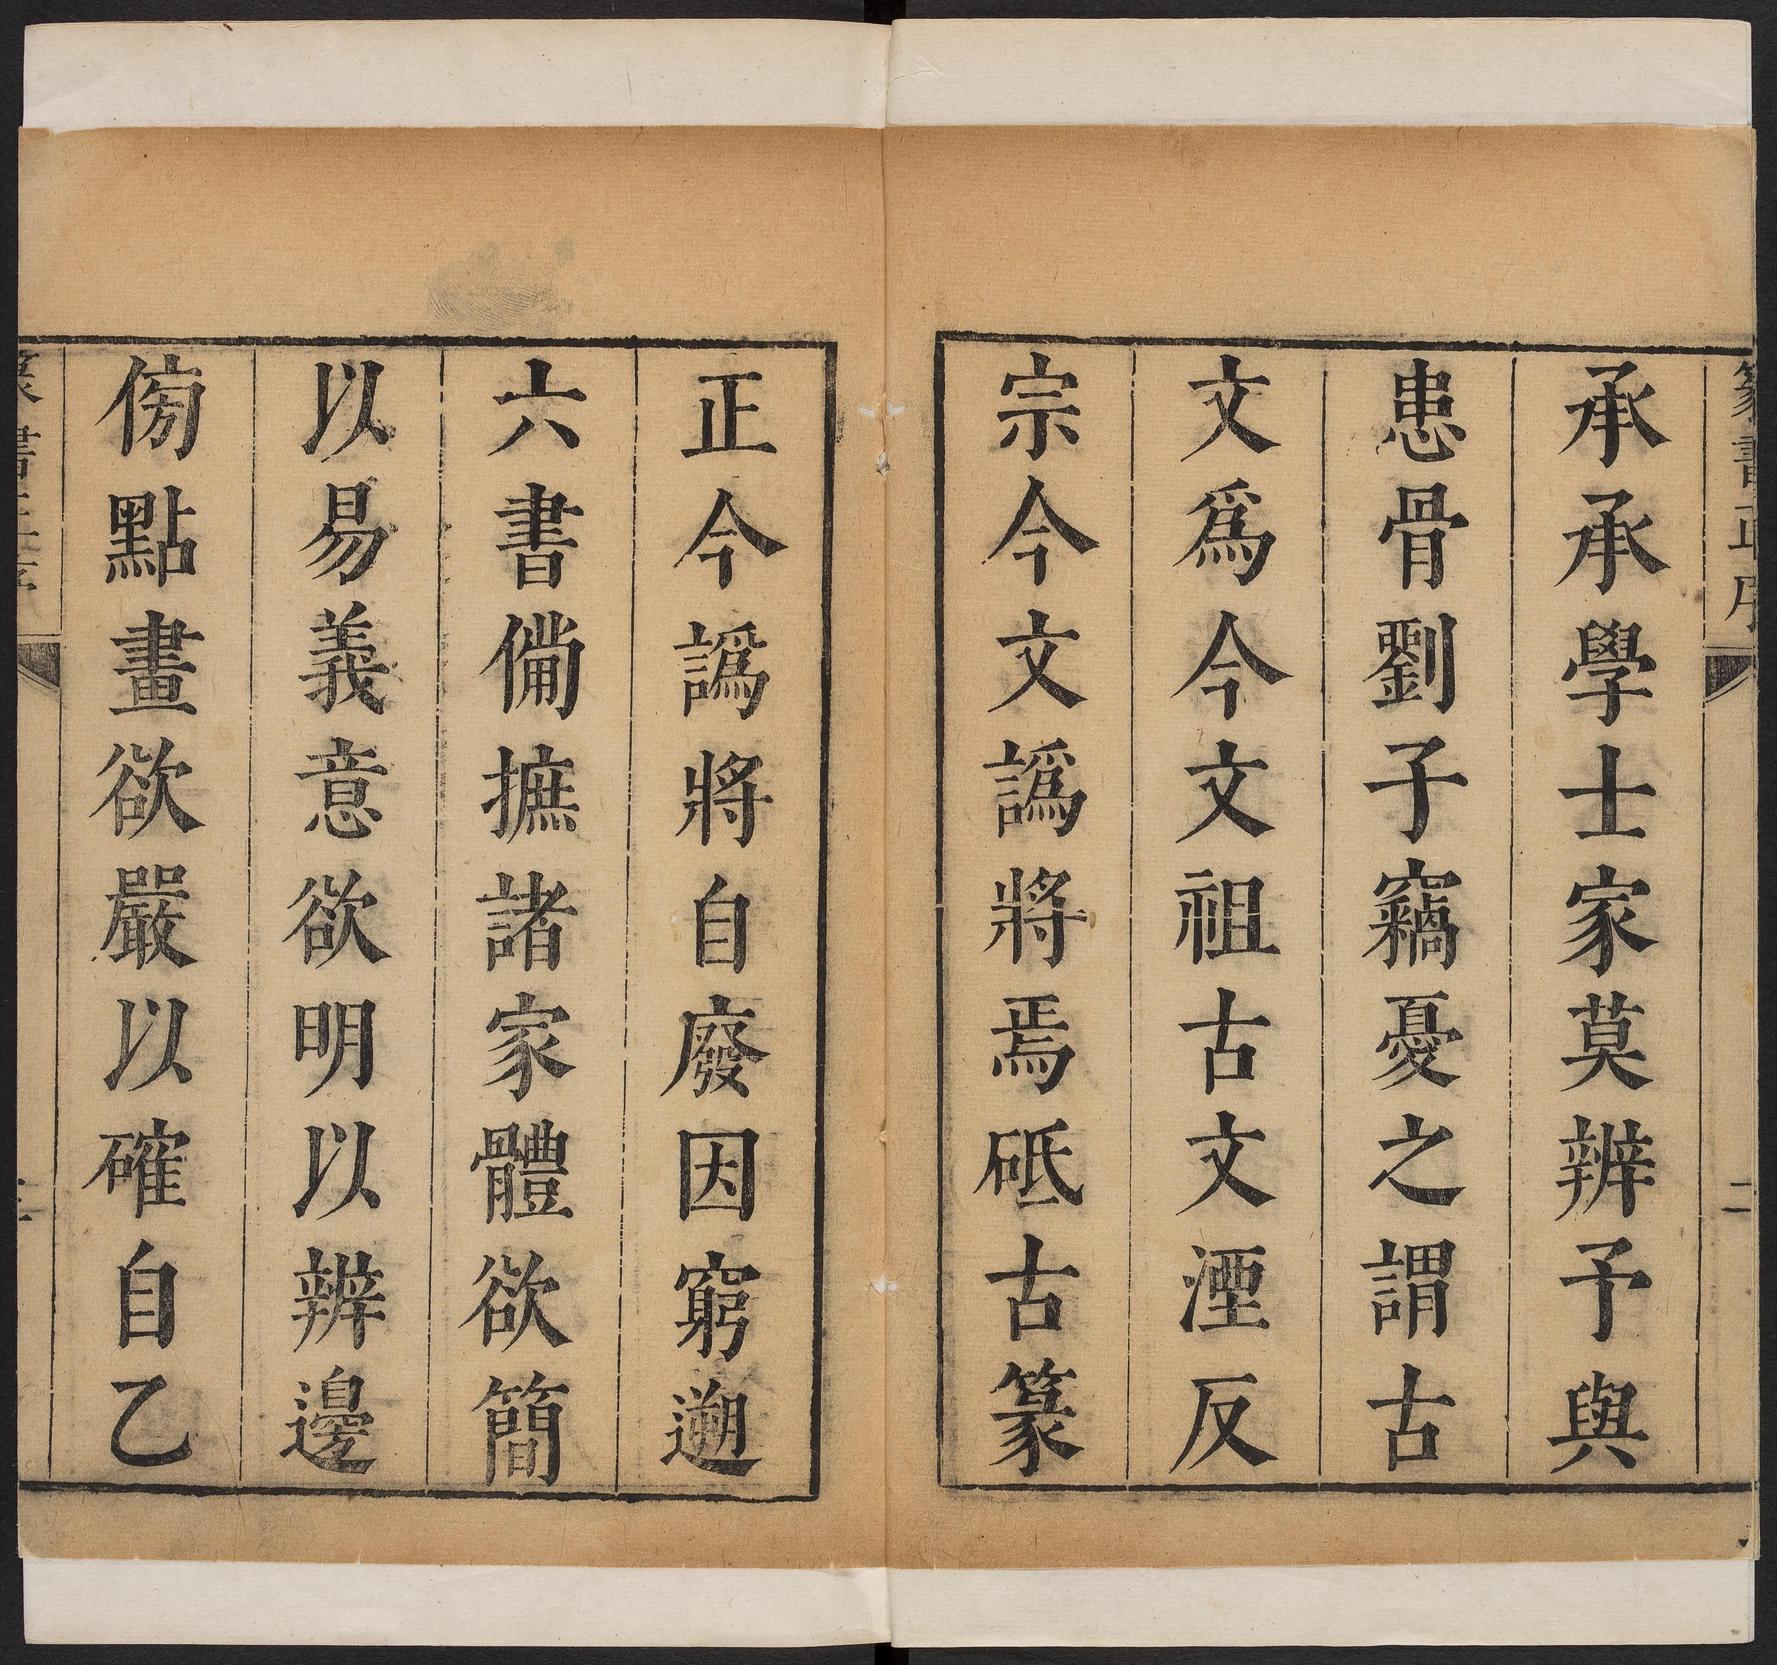 篆書正序
二
承承學士家莫辨予與
患骨劉子竊憂之謂古
文爲今文祖古文湮反
宗今文譌將焉砥古篆
正今譌將自廢因窮遡
六書備摭諸家體欲簡
以易義意欲明以辨邊
傍點畫欲嚴以確自乙